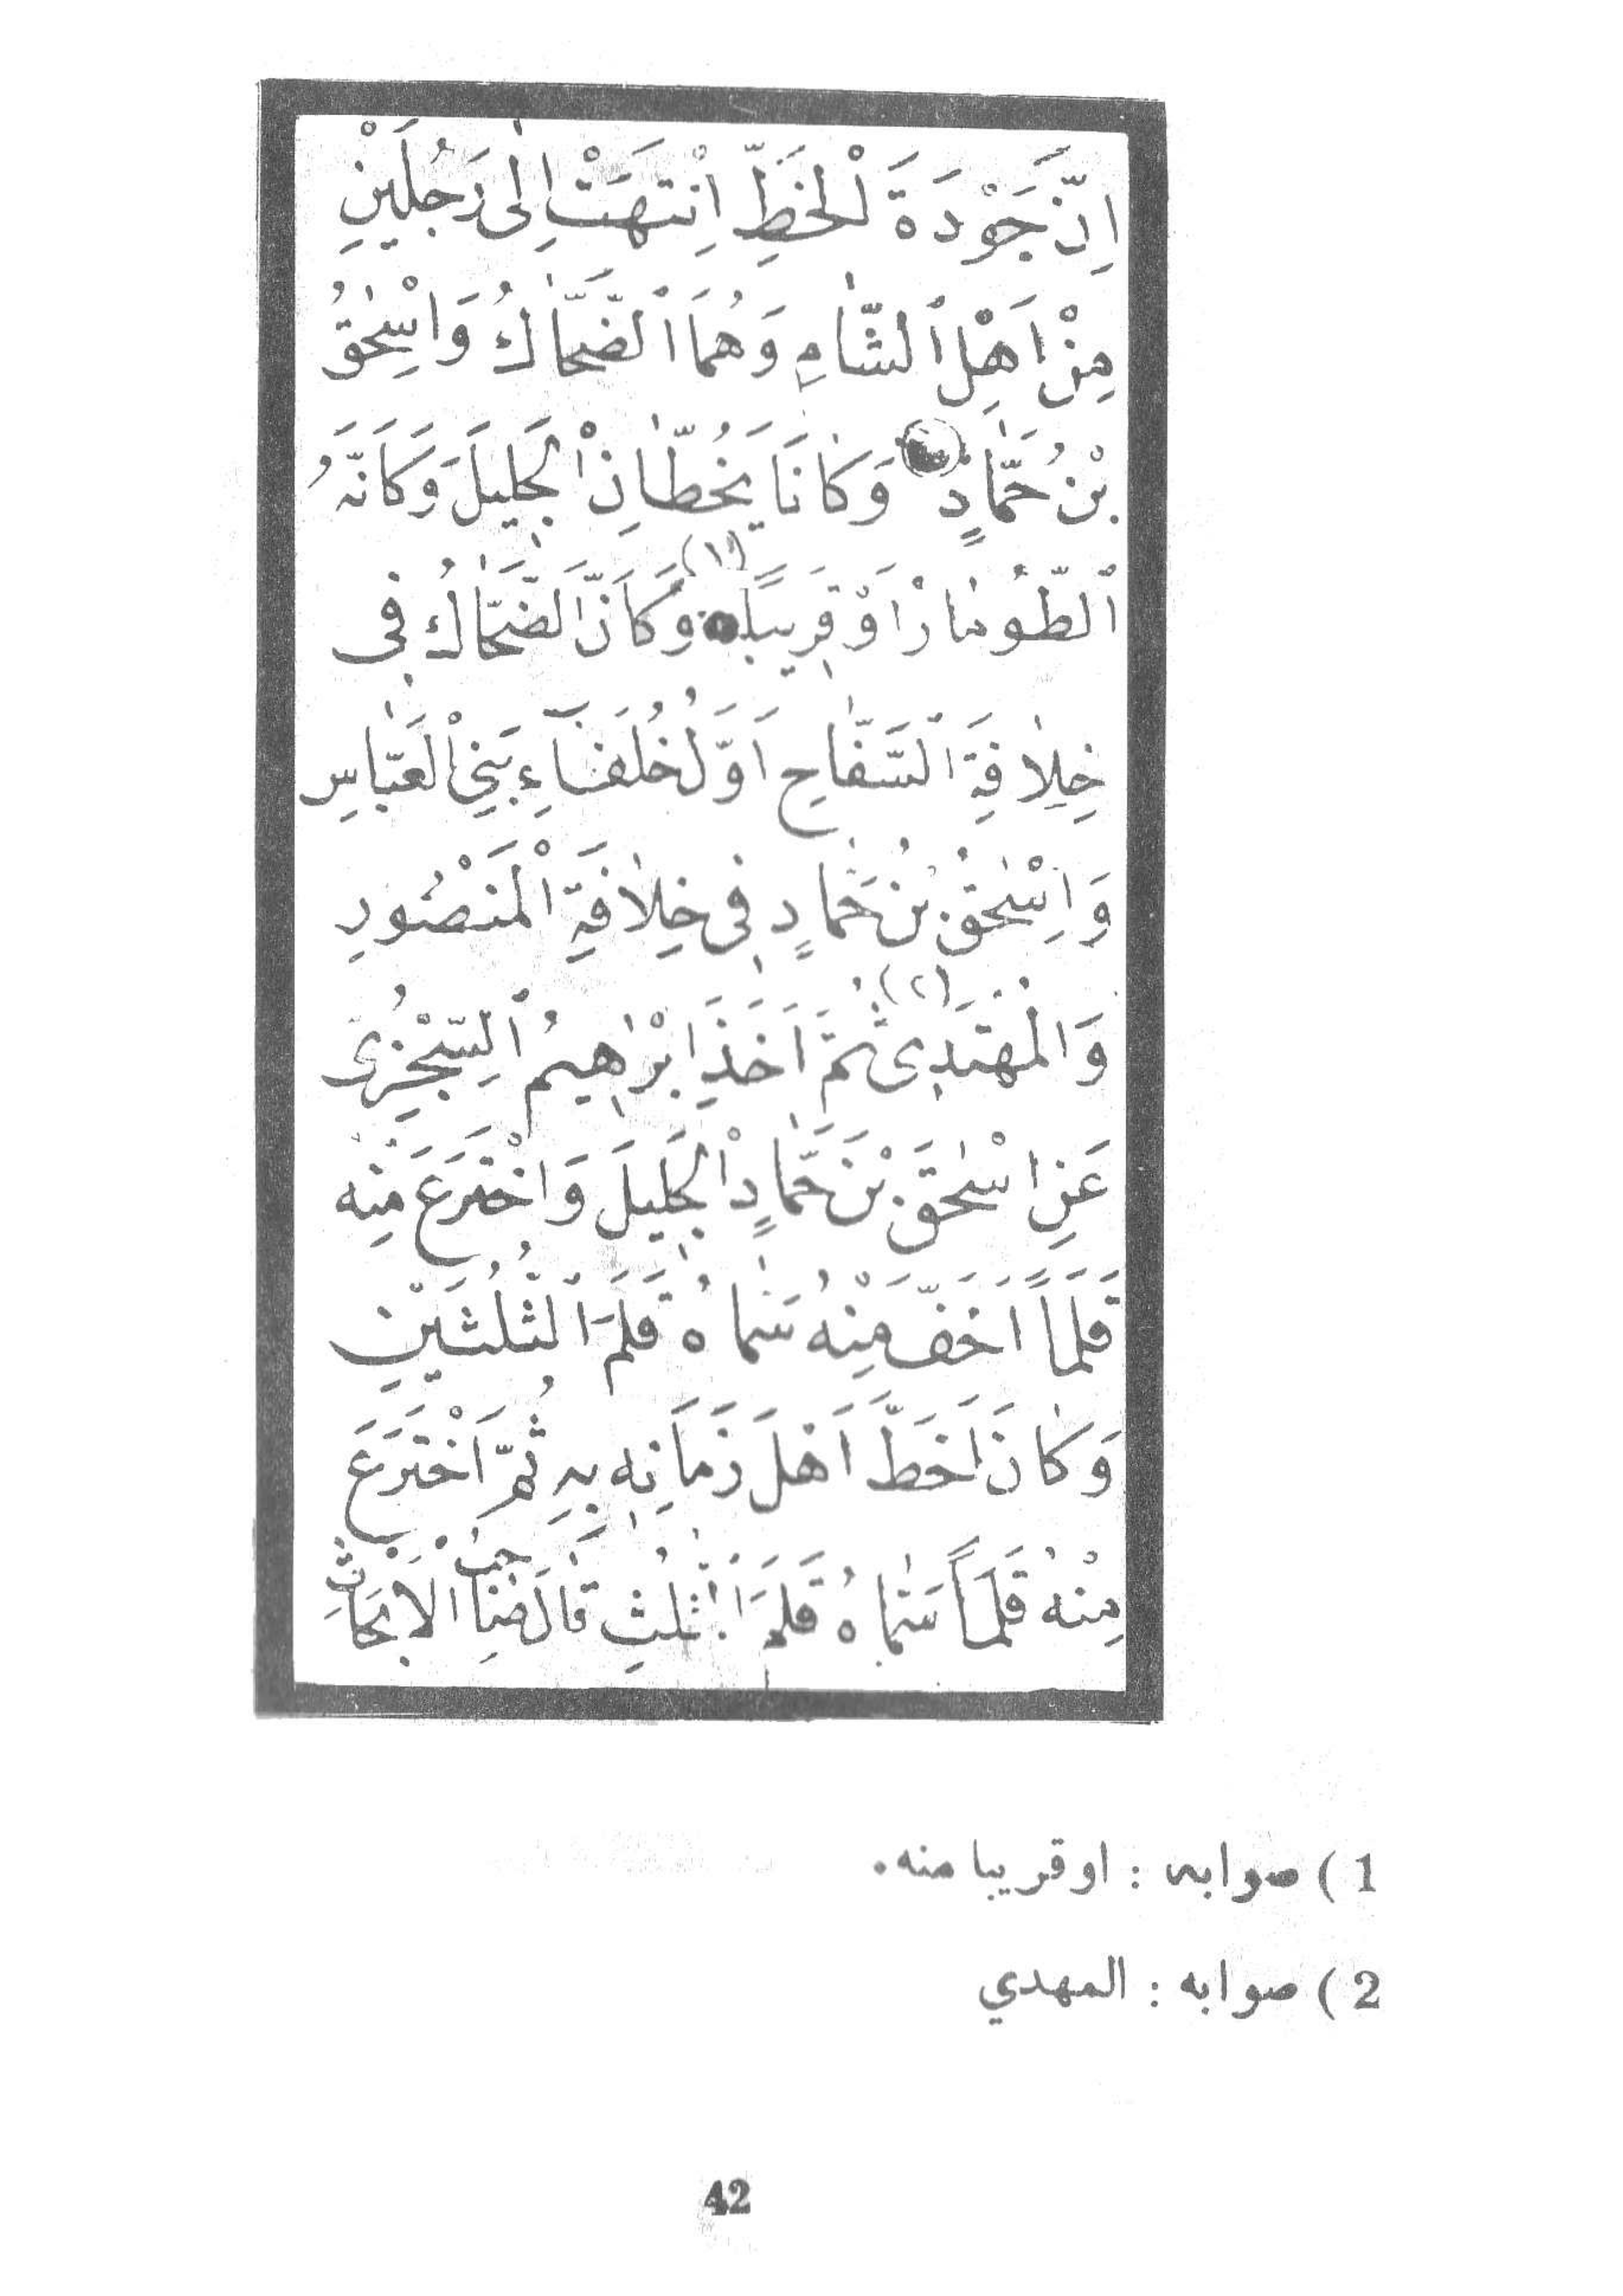 اِنَّ جَوْدَةَ الْخَطِّ اِنْتَهَتْ اِلٰى رَجُلَيْنِ
مِنْ اَهْلِ الشَّامِ وَهُمَا الضَّحَّاكُ وَاِسْحٰقُ
بْنُ حَمَّادٍ وَكَانَا يَخُطَّانِ الْجَلِيلَ وَكَاَنَّهُ
الطُّومَارُ اَوْ قَرِيبًا (١) وَكَانَ الضَّحَّاكُ فِى
خِلَافَةِ السَّفَّاحِ اَوَّلُ خُلَفَآءِ بَنِى الْعَبَّاسِ
وَاِسْحٰقُ بْنُ حَمَّادٍ فِى خِلَافَةِ الْمَنْصُورِ
وَالْمُهْتَدِى (٢) ثُمَّ اَخَذَ اِبْرٰهِيمُ السِّجْزِىُّ
عَنْ اِسْحٰقَ بْنَ حَمَّادٍ الْجَلِيلَ وَاخْتَرَعَ مِنْه
قَلَمًا اَخَفَّ مِنْهُ سَمَّاهُ قَلَمَ الثُّلُثَيْنِ
وَكَانَ اَخَطَّ اَهْلَ زَمَانِهِ بِهِ ثُمَّ اخْتَرَعَ
مِنْهُ قَلَمًا سَمَّاهُ قَلَمَ الثُّلُثِ قَالَ صَاحِبُ الْاَبْحَاثِ
1 ) صوابه : او قريبا منه.
2 ) صوابه : المهدي
42